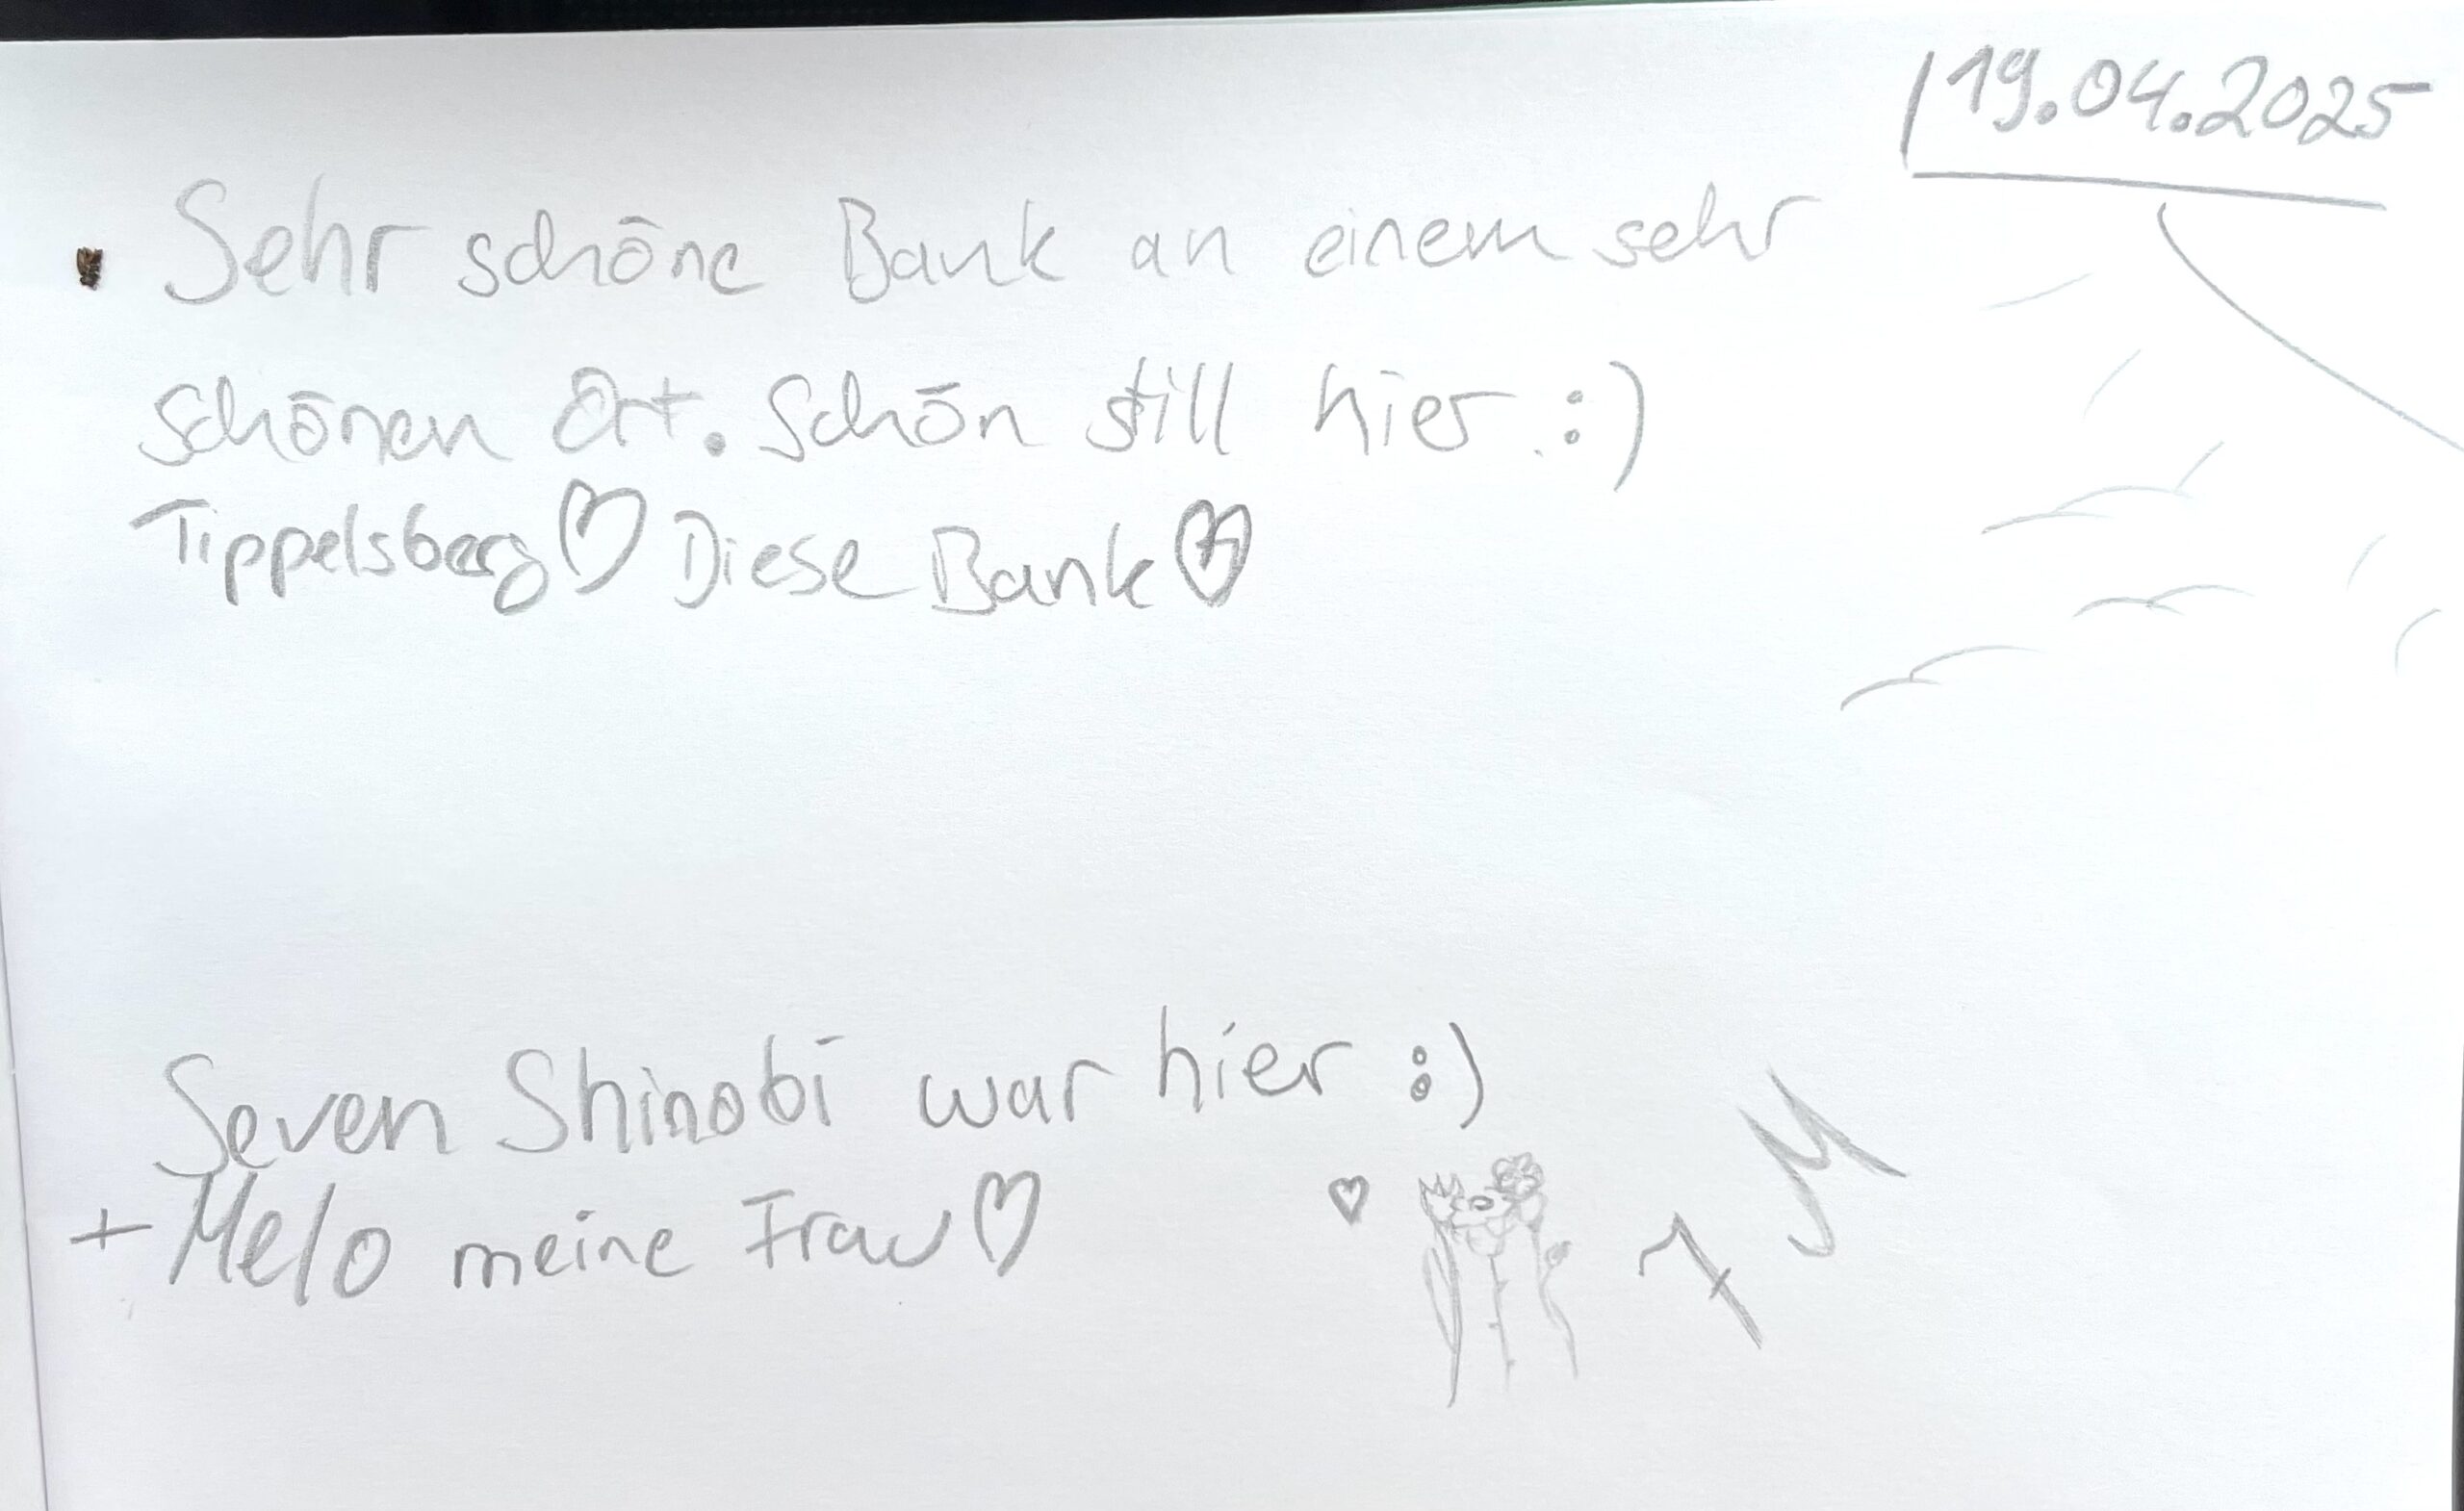 19.04.2025
Sehr schöne Bank an einem sehr
schönen Ort. Schön still hier :)
Tippelsberg♡ Diese Bank♡
Seven Shinobi war hier :)
+ Melo meine Frau♡
♡ 7 M